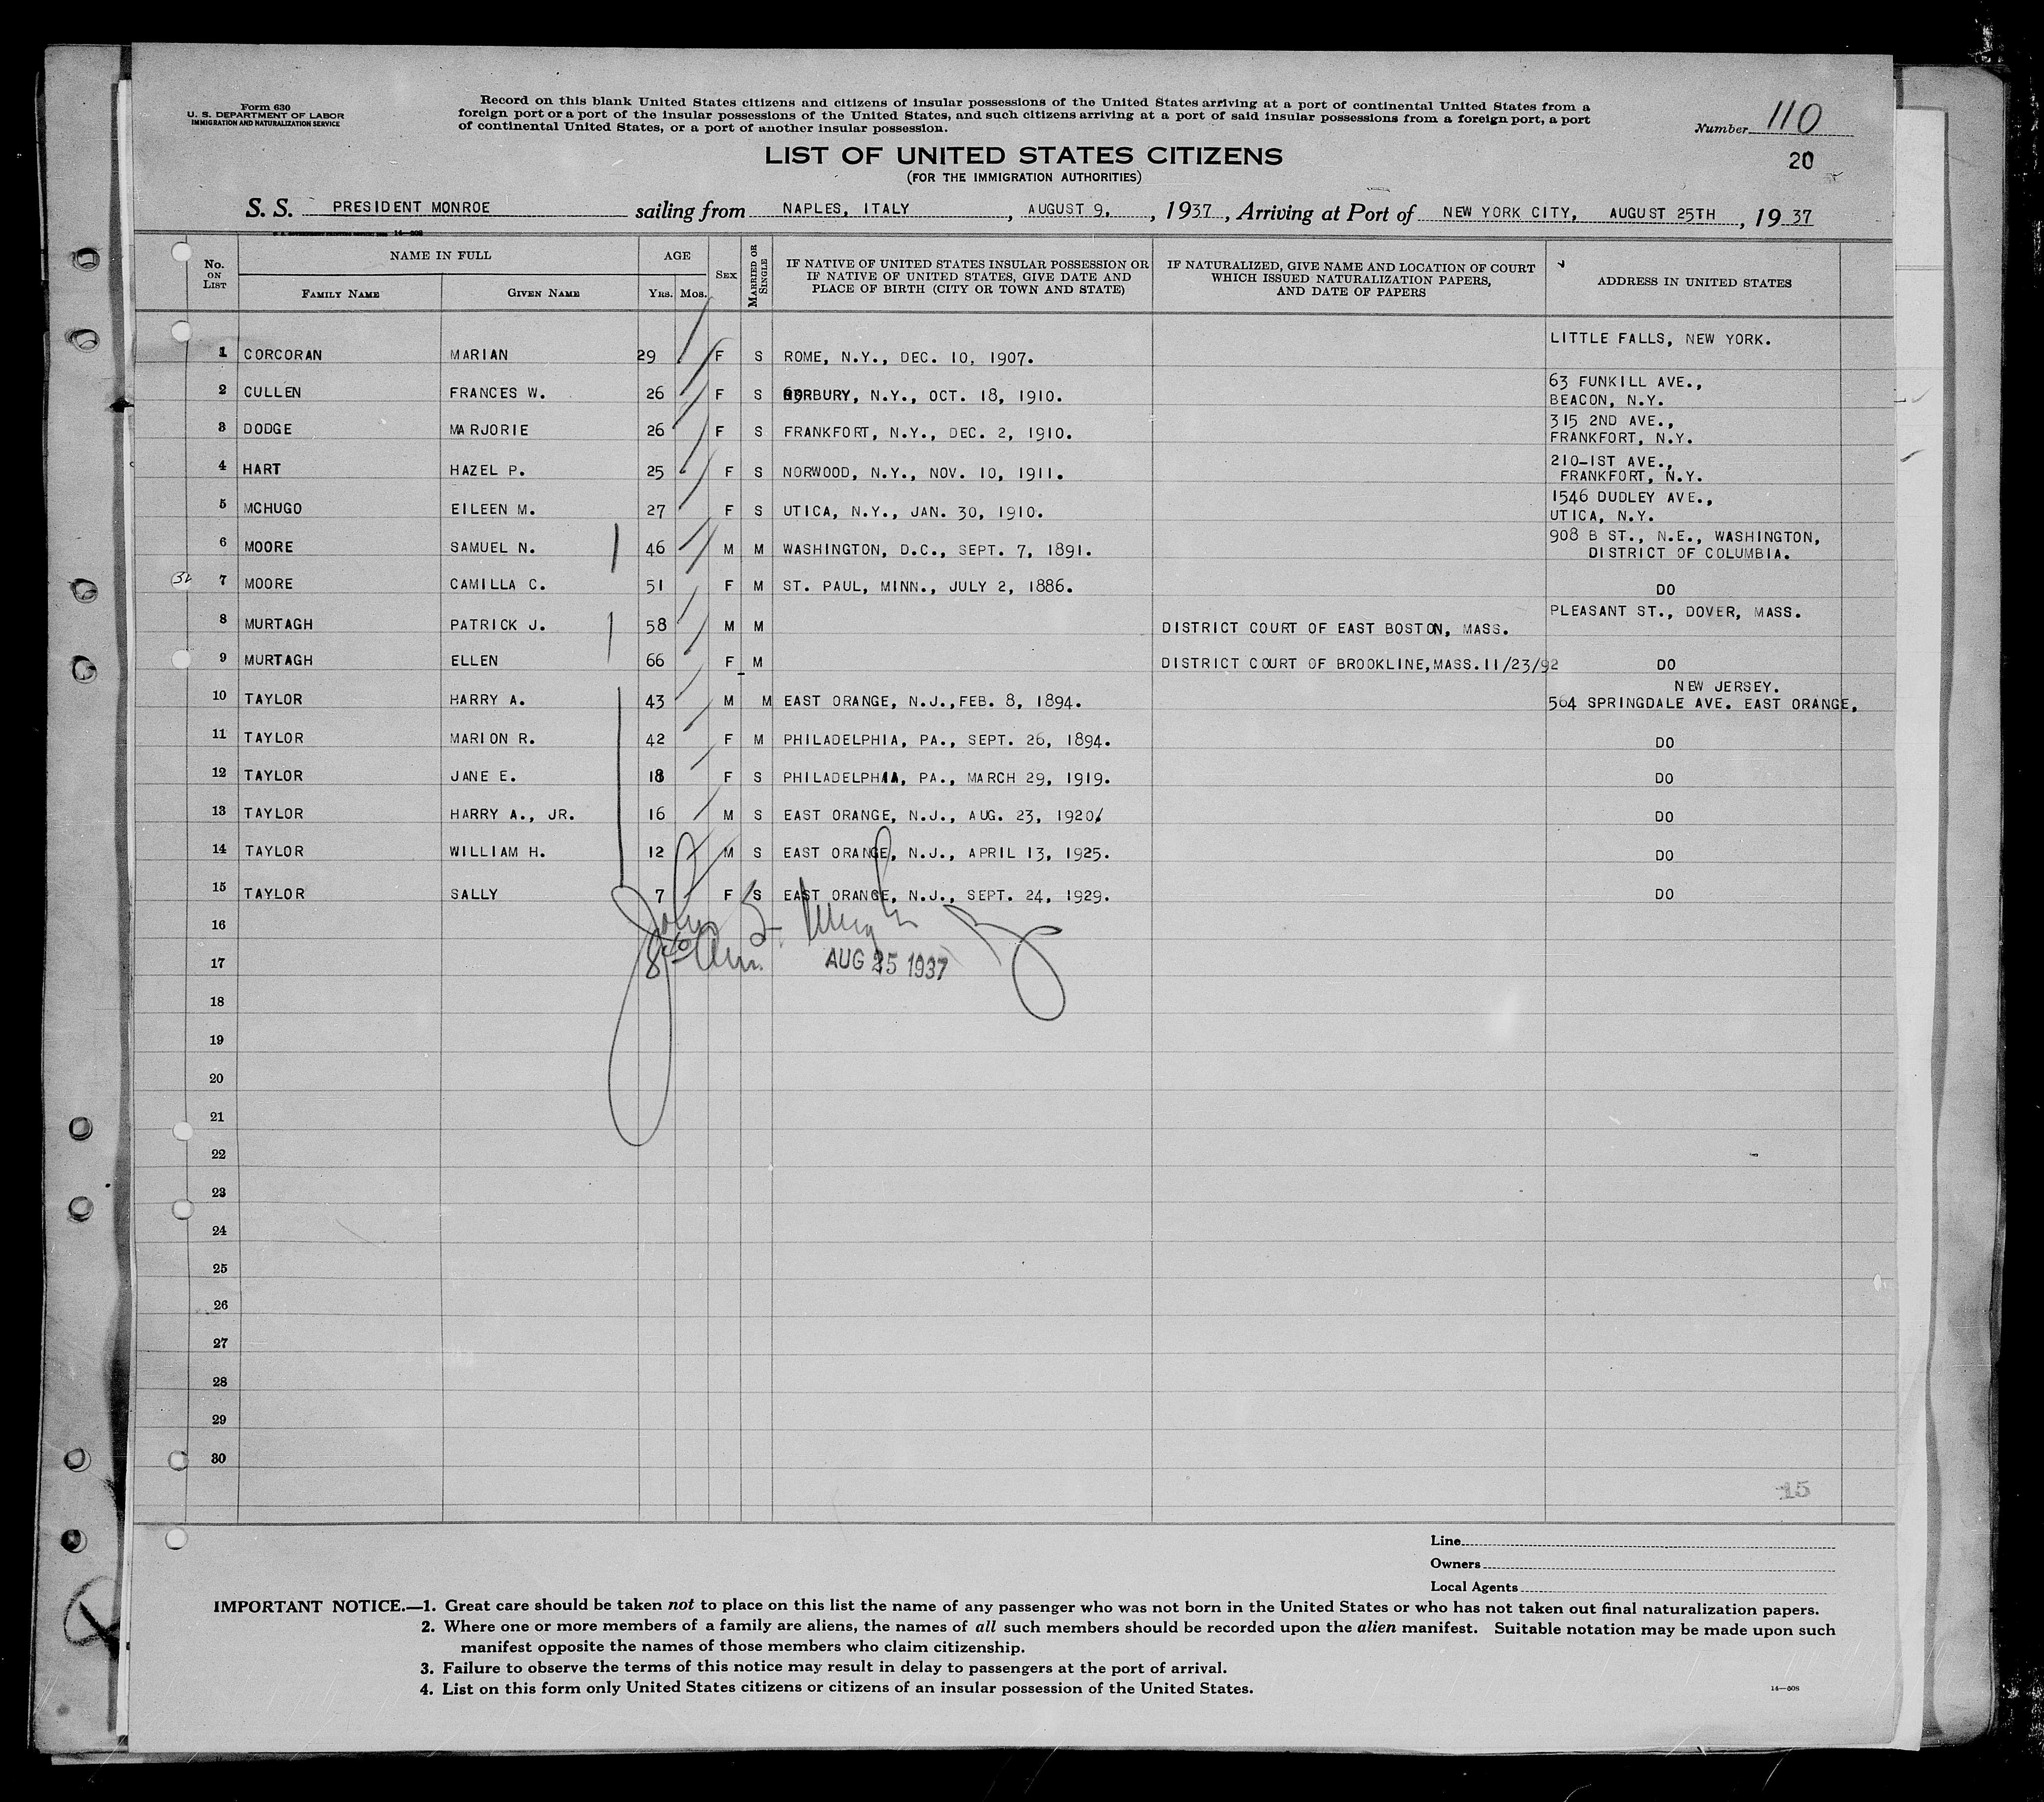 Form 630
U. S. DEPARTMENT OF LABOR
IMMIGRATION AND NATURALIZATION SERVICE
Record on this blank United States citizens and citizens of insular possessions of the United States arriving at a port of continental United States from a
foreign port or a port of the insular possessions of the United States, and such citizens arriving at a port of said insular possessions from a foreign port, a port
of continental United States, or a port of another insular possession.
Number 110
20
LIST OF UNITED STATES CITIZENS
(FOR THE IMMIGRATION AUTHORITIES)
S. S. PRESIDENT MONROE sailing from NAPLES, ITALY, AUGUST 9, , 1937, Arriving at Port of NEW YORK CITY, AUGUST 25TH, 19 37
No. ON LIST NAME IN FULL AGE SEX MARRIED OR SINGLE IF NATIVE OF UNITED STATES INSULAR POSSESSION OR IF NATIVE OF UNITED STATES, GIVE DATE AND PLACE OF BIRTH (CITY OR TOWN AND STATE) IF NATURALIZED, GIVE NAME AND LOCATION OF COURT WHICH ISSUED NATURALIZATION PAPERS, AND DATE OF PAPERS ADDRESS IN UNITED STATES
FAMILY NAME GIVEN NAME YRS. MOS.
LITTLE FALLS, NEW YORK.
1 CORCORAN MARIAN 29 F S ROME, N.Y., DEC. 10, 1907.
63 FUNKILL AVE.,
2 CULLEN FRANCES W. 26 F S N.Y., OCT. 18, 1910. BEACON, N.Y.
315 2ND AVE.,
3 DODGE MARJORIE 26 F S FRANKFORT, N.Y., DEC. 2, 1910. FRANKFORT, N.Y.
210-1ST AVE.,
4 HART HAZEL P. 25 F S NORWOOD, N.Y., NOV. 10, 1911. FRANKFORT, N.Y.
1546 DUDLEY AVE.,
5 MCHUGO EILEEN M. 27 F S UTICA, N.Y., JAN. 30, 1910. UTICA, N.Y.
908 B ST., N.E., WASHINGTON,
6 MOORE SAMUEL N. 46 M M WASHINGTON, D.C., SEPT. 7, 1891. DISTRICT OF COLUMBIA.
7 MOORE CAMILLA C. 51 F M ST. PAUL, MINN., JULY 2, 1886. DO
PLEASANT ST., DOVER, MASS.
8 MURTAGH PATRICK J. 58 M M DISTRICT COURT OF EAST BOSTON, MASS.
9 MURTAGH ELLEN 66 F M DISTRICT COURT OF BROOKLINE,MASS.11/23/92 DO
NEW JERSEY.
10 TAYLOR HARRY A. 43 M M EAST ORANGE, N.J.,FEB. 8, 1894. 564 SPRINGDALE AVE. EAST ORANGE,
11 TAYLOR MARION R. 42 F M PHILADELPHIA, PA., SEPT. 26, 1894. DO
12 TAYLOR JANE E. 18 F S PHILADELPHIA, PA., MARCH 29, 1919. DO
13 TAYLOR HARRY A., JR. 16 M S EAST ORANGE, N.J., AUG. 23, 1920. DO
14 TAYLOR WILLIAM H. 12 M S EAST ORANGE, N.J., APRIL 13, 1925. DO
15 TAYLOR SALLY 7 F S EAST ORANGE, N.J., SEPT. 24, 1929. DO
16
17 AUG 25 1937
18
19
20
21
22
23
24
25
26
27
28
29
30
15
Line
Owners
Local Agents
IMPORTANT NOTICE.—1. Great care should be taken not to place on this list the name of any passenger who was not born in the United States or who has not taken out final naturalization papers.
2. Where one or more members of a family are aliens, the names of all such members should be recorded upon the alien manifest. Suitable notation may be made upon such
manifest opposite the names of those members who claim citizenship.
3. Failure to observe the terms of this notice may result in delay to passengers at the port of arrival.
4. List on this form only United States citizens or citizens of an insular possession of the United States.
14—608